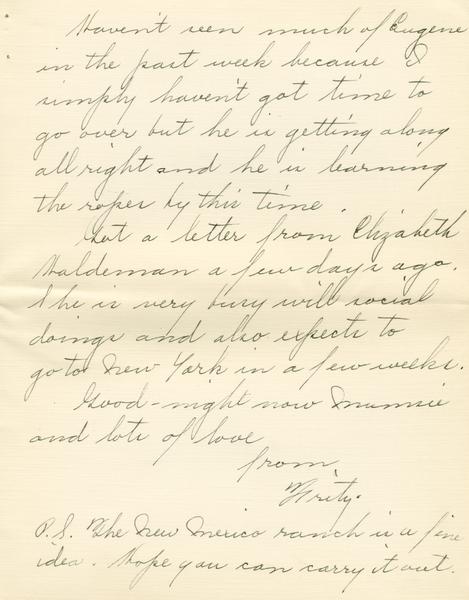 Haven't seen much of Eugene
in the past week because I
simply haven't got time to
go over but he is getting along
all right and he is learning
the ropes by this time.
Got a letter from Elizabeth
Haldeman a few days ago.
She is very busy with social
doings and also expects to
go to New York in a few weeks.
Good-night now Mumsie
and lots of love
from,
Fritz.
P.S. The New Mexico ranch is a fine
idea. Hope you can carry it out.